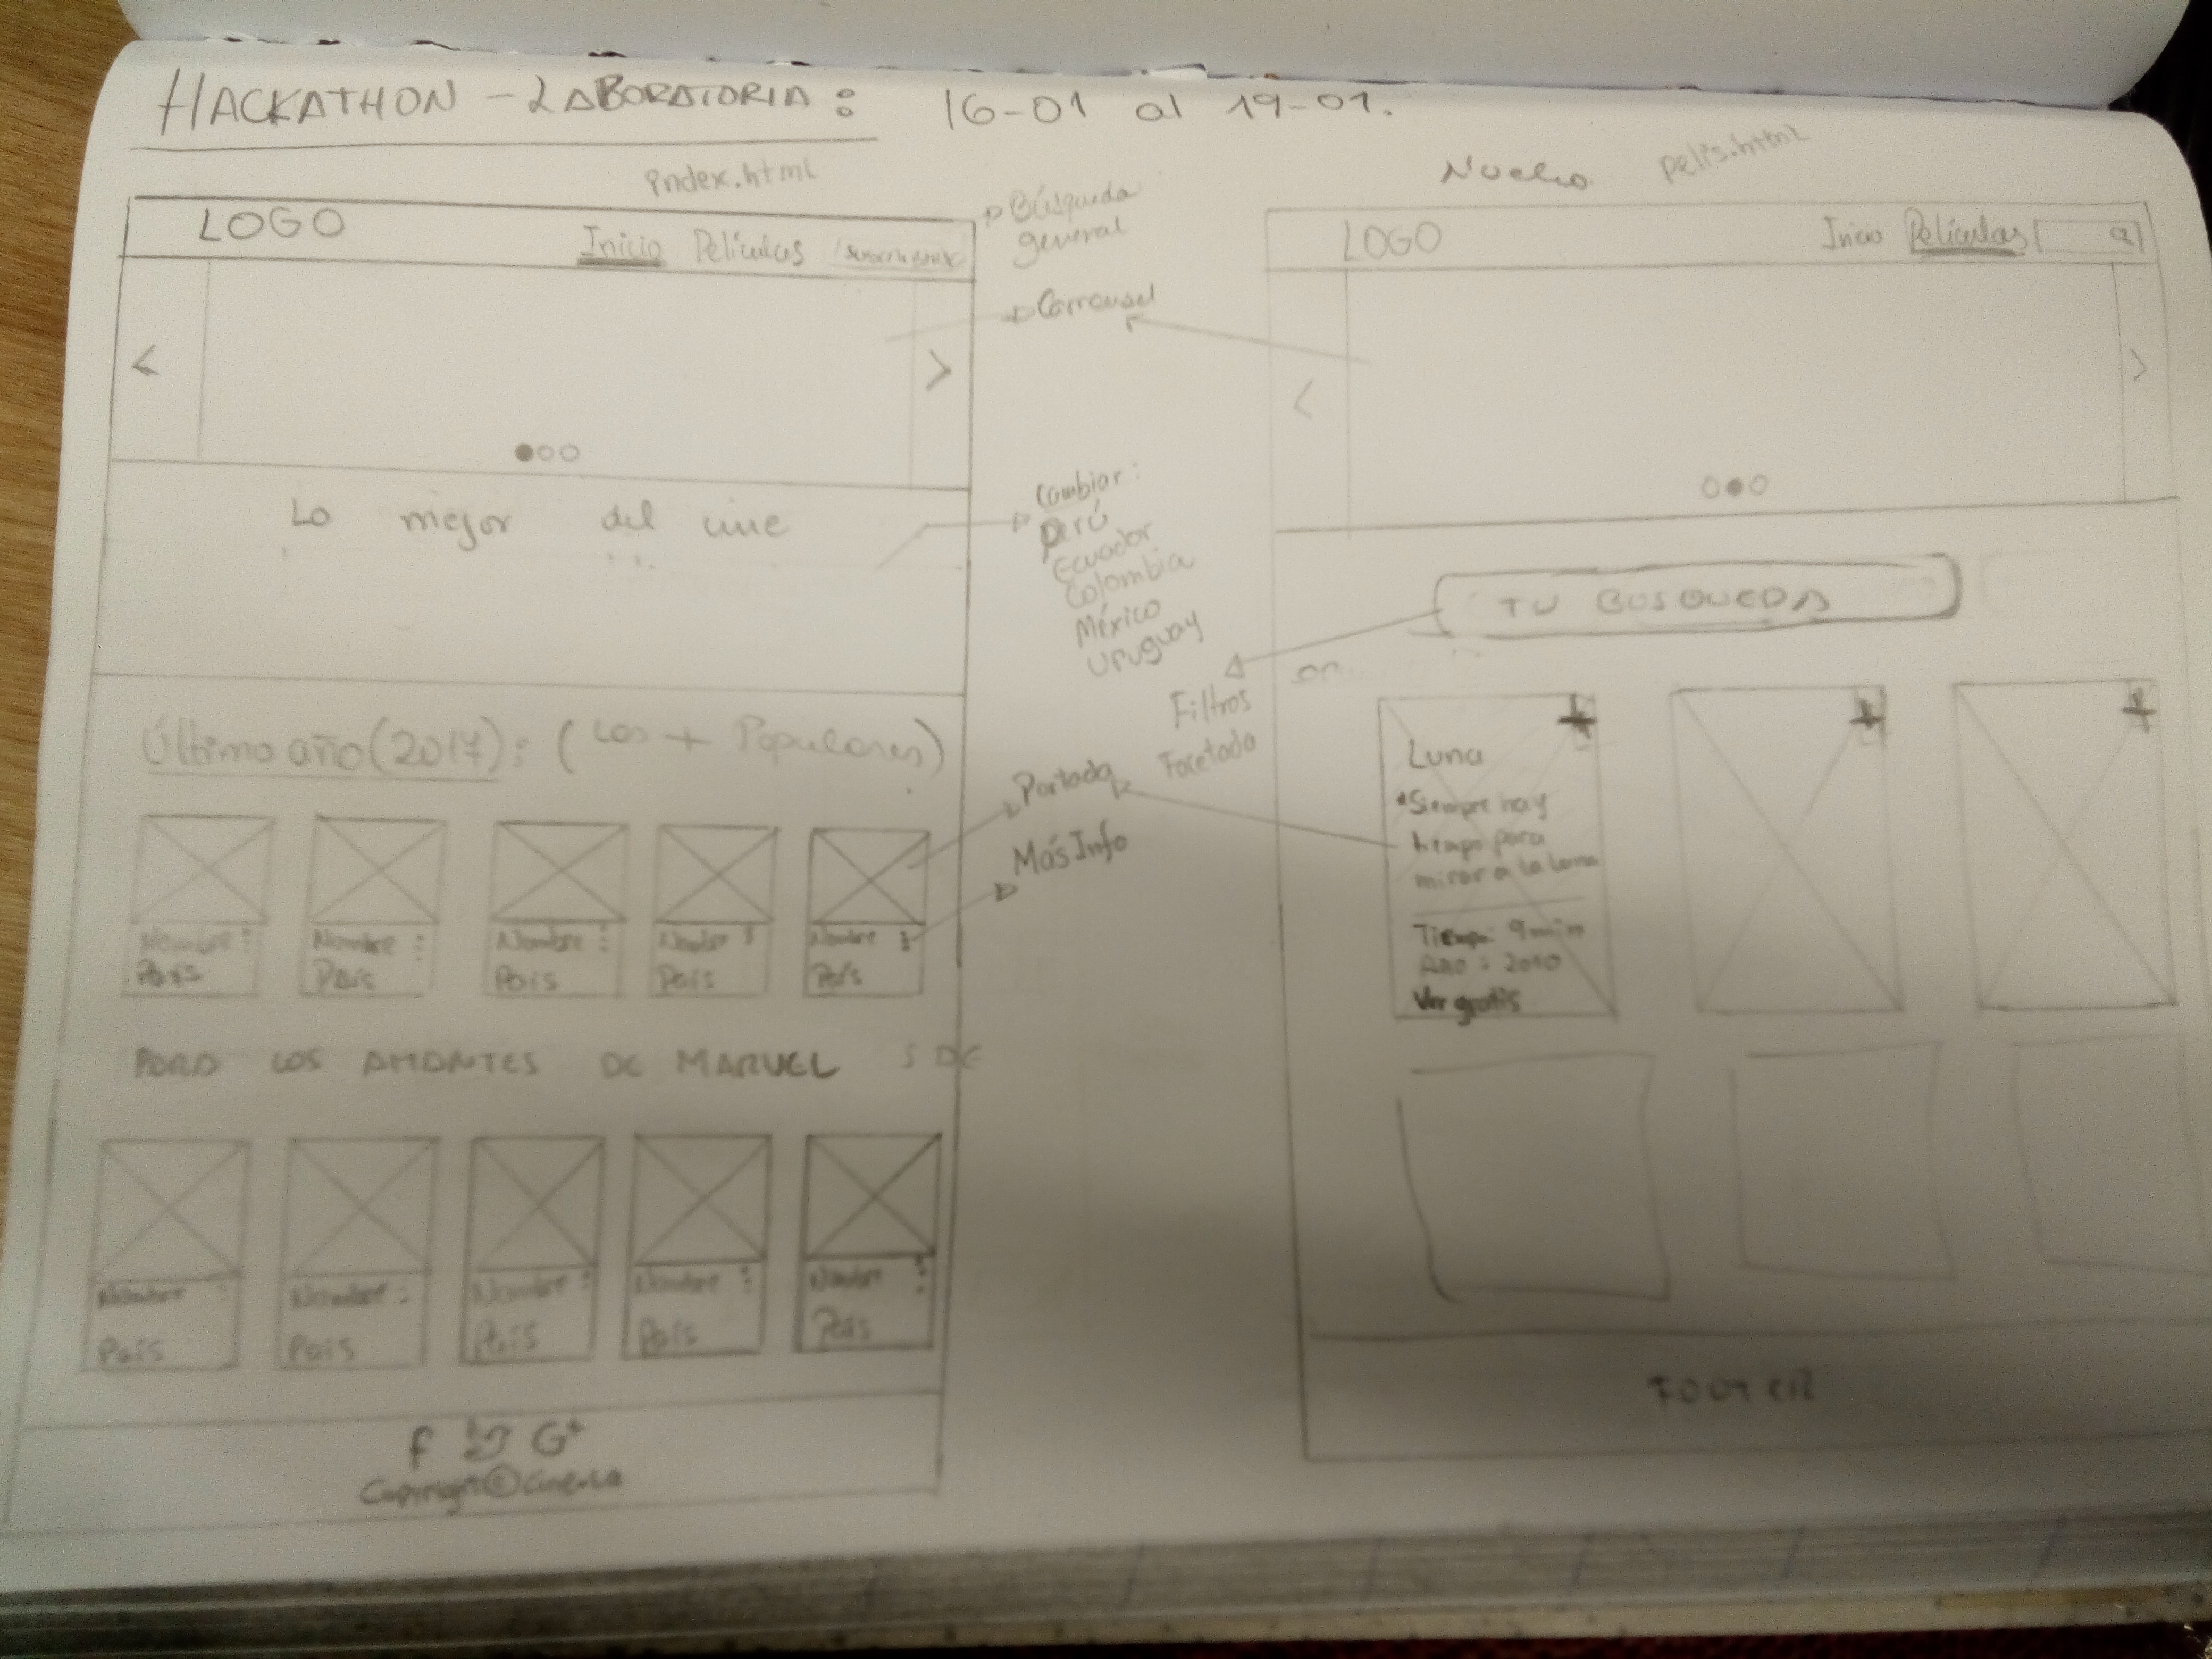 HACKATHON - LABORATORIA : 16-01 al 19-01.
index.html
LOGO
Inicio Películas
Lo mejor del cine
Último año (2017): (Los + Populares)
Nombre : Nombre : Nombre : Nombre : Nombre :
País País País País País
PARA LOS AMANTES DE MARVEL
Nombre : Nombre : Nombre : Nombre : Nombre :
País País País País País
f G+
Copyright ©
Búsqueda
general
Carrousel
Cambiar :
Perú
Ecuador
Colombia
México
Uruguay
Filtros
Facetada
Portada
Más Info
pelis.html
LOGO
Inicio Películas
TU BUSQUEDA
+ + +
Luna
Siempre hay
tiempo para
mirar a la Luna
Tiempo: 9min
Año : 2010
Ver gratis
FOOTER